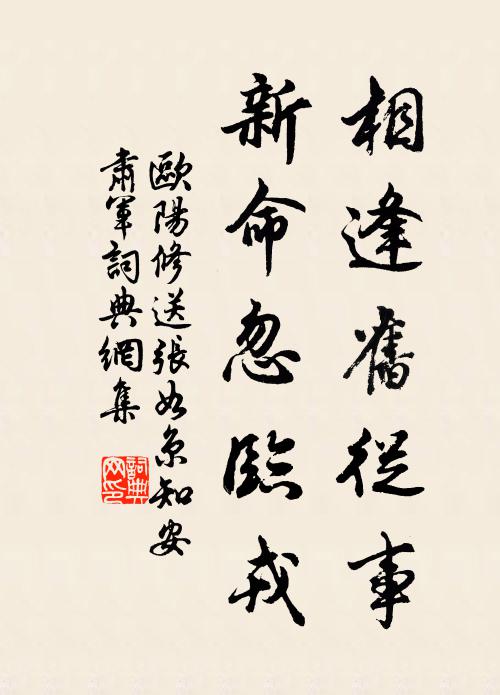 相逢舊從事
新命忽臨戎
歐陽修送張如京知安
肅軍詞典網集
詞典网印